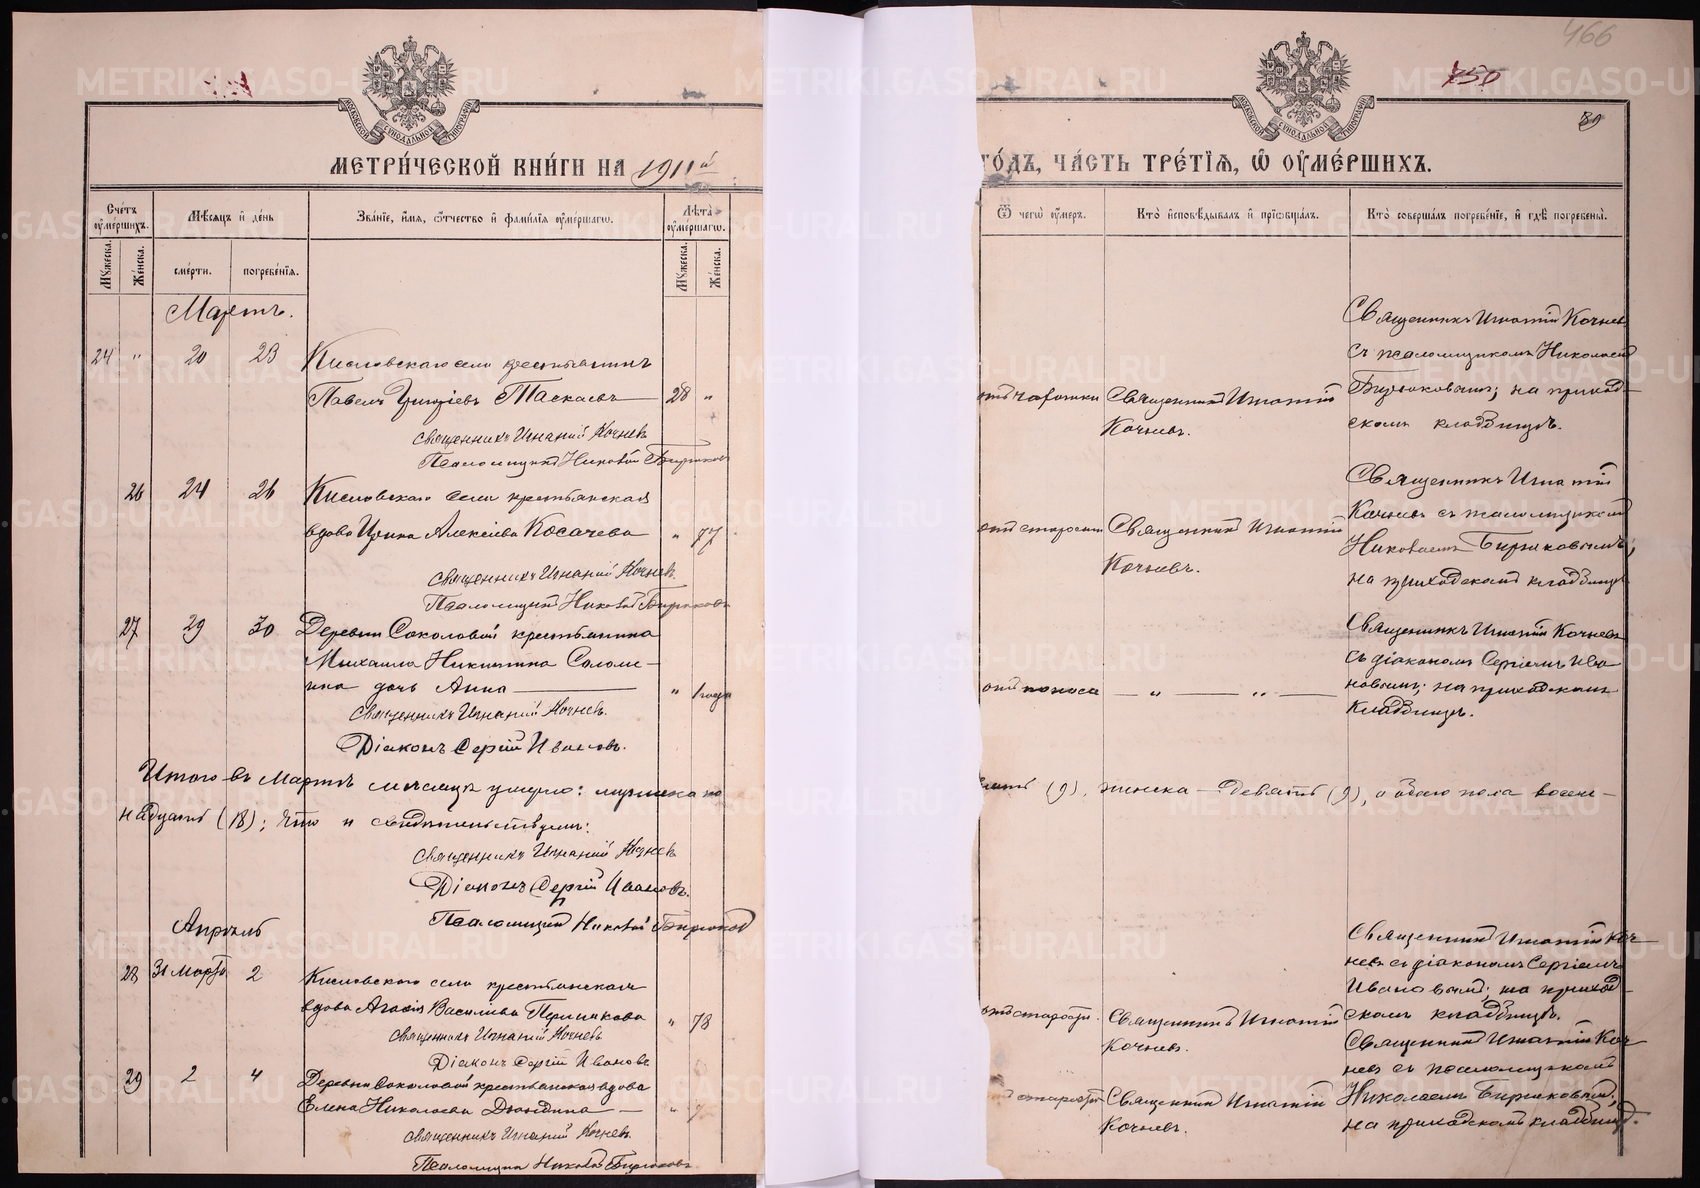 466
750
89
МОСКОВСКОЙ СѴНОДАЛЬНОЙ ТИПОГРАФІИ
МЕТРИ́ЧЕСКОЙ КНИ́ГИ НА 1911й
ГО́ДЪ, ЧА́СТЬ ТРЕ́ТІѦ, Ѿ ОУМЕ́РШИХЪ.
Сче́тъ оуме́ршихъ.
Мѣсяцъ и де́нь
Зва́ніе, и́мя, о́тчество и фами́лія оуме́ршагѡ.
Лѣта̀ оуме́ршагѡ.
Мꙋ́жеска.
Же́нска.
сме́рти.
погребе́нія.
Мꙋ́жеска.
Же́нска.
Ѿ чегѡ̀ оу́меръ.
Кто̀ исповѣ́дывалъ и прїѡбща́лъ.
Кто̀ соверша́лъ погребе́ніе, и гдѣ̀ погребены̀.
Мартъ.
24 " 20 23 Кисловскаго села крестьянинъ
Павелъ Григорьевъ Таскаевъ 28 "
Священникъ Игнатий Кочневъ
Псаломщикъ Николай Бирюковъ
отъ чахотки
Священникъ Игнатій
Кочневъ.
Священникъ Игнатій Кочневъ
съ псаломщикомъ Николаемъ
Бирюковымъ; на приход-
скомъ кладбищѣ.
26 24 26 Кисловскаго села крестьянская
вдова Ирина Алексіева Косачева " 77
Священникъ Игнатий Кочневъ.
Псаломщикъ Николай Бирюковъ
отъ старости
Священникъ Игнатій
Кочневъ.
Священникъ Игнатій
Кочневъ съ псаломщикомъ
Николаемъ Бирюковымъ;
на приходскомъ кладбищѣ
27 29 30 Деревни Соколовой крестьянина
Михаила Никитина Соломе-
ина дочь Анна " 1 года
Священникъ Игнатий Кочневъ.
Діаконъ Сергій Ивановъ.
отъ поноса — " — " —
Священникъ Игнатій Кочневъ
съ діакономъ Сергіемъ Ива
новымъ; на приходскомъ
кладбищѣ.
Итого въ Мартѣ мѣсяцѣ умерло: мужеска по
вять (9), женска — девять (9), а обоего пола восем-
надцать (18); что и свидѣтельствуемъ:
Священникъ Игнатий Кочневъ
Діаконъ Сергій Ивановъ.
Псаломщикъ Николай Бирюков
Апрѣль
28 31 марта 2 Кисловскаго села крестьянская
вдова Агафія Василіева Пермякова " 78
Священникъ Игнатий Кочневъ
Діаконъ Сергій Ивановъ
отъ старости.
Священникъ Игнатій
Кочневъ.
Священникъ Игнатій Коч-
невъ съ діакономъ Сергіемъ
Ивановымъ; на приход-
скомъ кладбищѣ.
29 2 4 Деревни Соколовой крестьянская вдова
Елена Николаева —
Священникъ Игнатий Кочневъ.
Псаломщикъ Николай Бирюковъ.
старости
Священникъ Игнатій
Кочневъ.
Священникъ Игнатій Коч-
невъ съ псаломщикомъ
Николаемъ Бирюковымъ;
на приходскомъ кладбищѣ.
METRIKI.GASO-URAL.RU